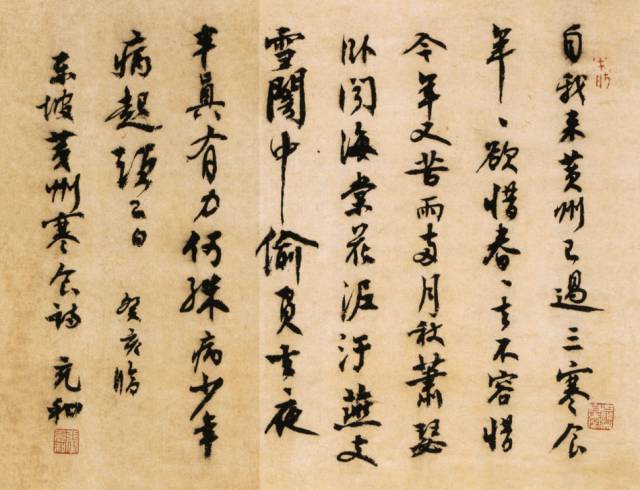 自我来黄州已過三寒食
年、欲惜春、去不容惜
今年又苦雨兩月秋蕭瑟
臥聞海棠花泥汙燕支
雪闇中偷負去夜
半真有力何殊病少年
病起頭已白 癸亥臨
東坡黄州寒食詩 充和